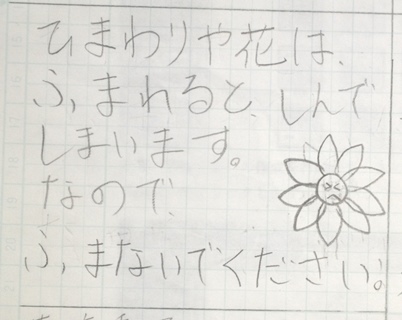 ひまわりや花は、
ふまれると、しんで
しまいます。
なので、
ふまないでください。